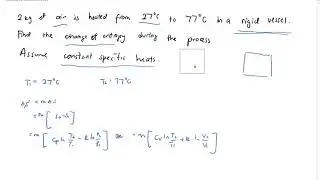 2 kg of air is heated from 27°C to 77°C in a rigid vessel.
Find the change of entropy during the process
Assume constant specific heats.
T₁ = 27°C T₂ = 77°C
= m Δs
= m [ s₂ - s₁ ]
= m [ Cp ln T₂/T₁ - R ln P₂/P₁ ] or = m [ Cv ln T₂/T₁ + R ln V₂/V₁ ]